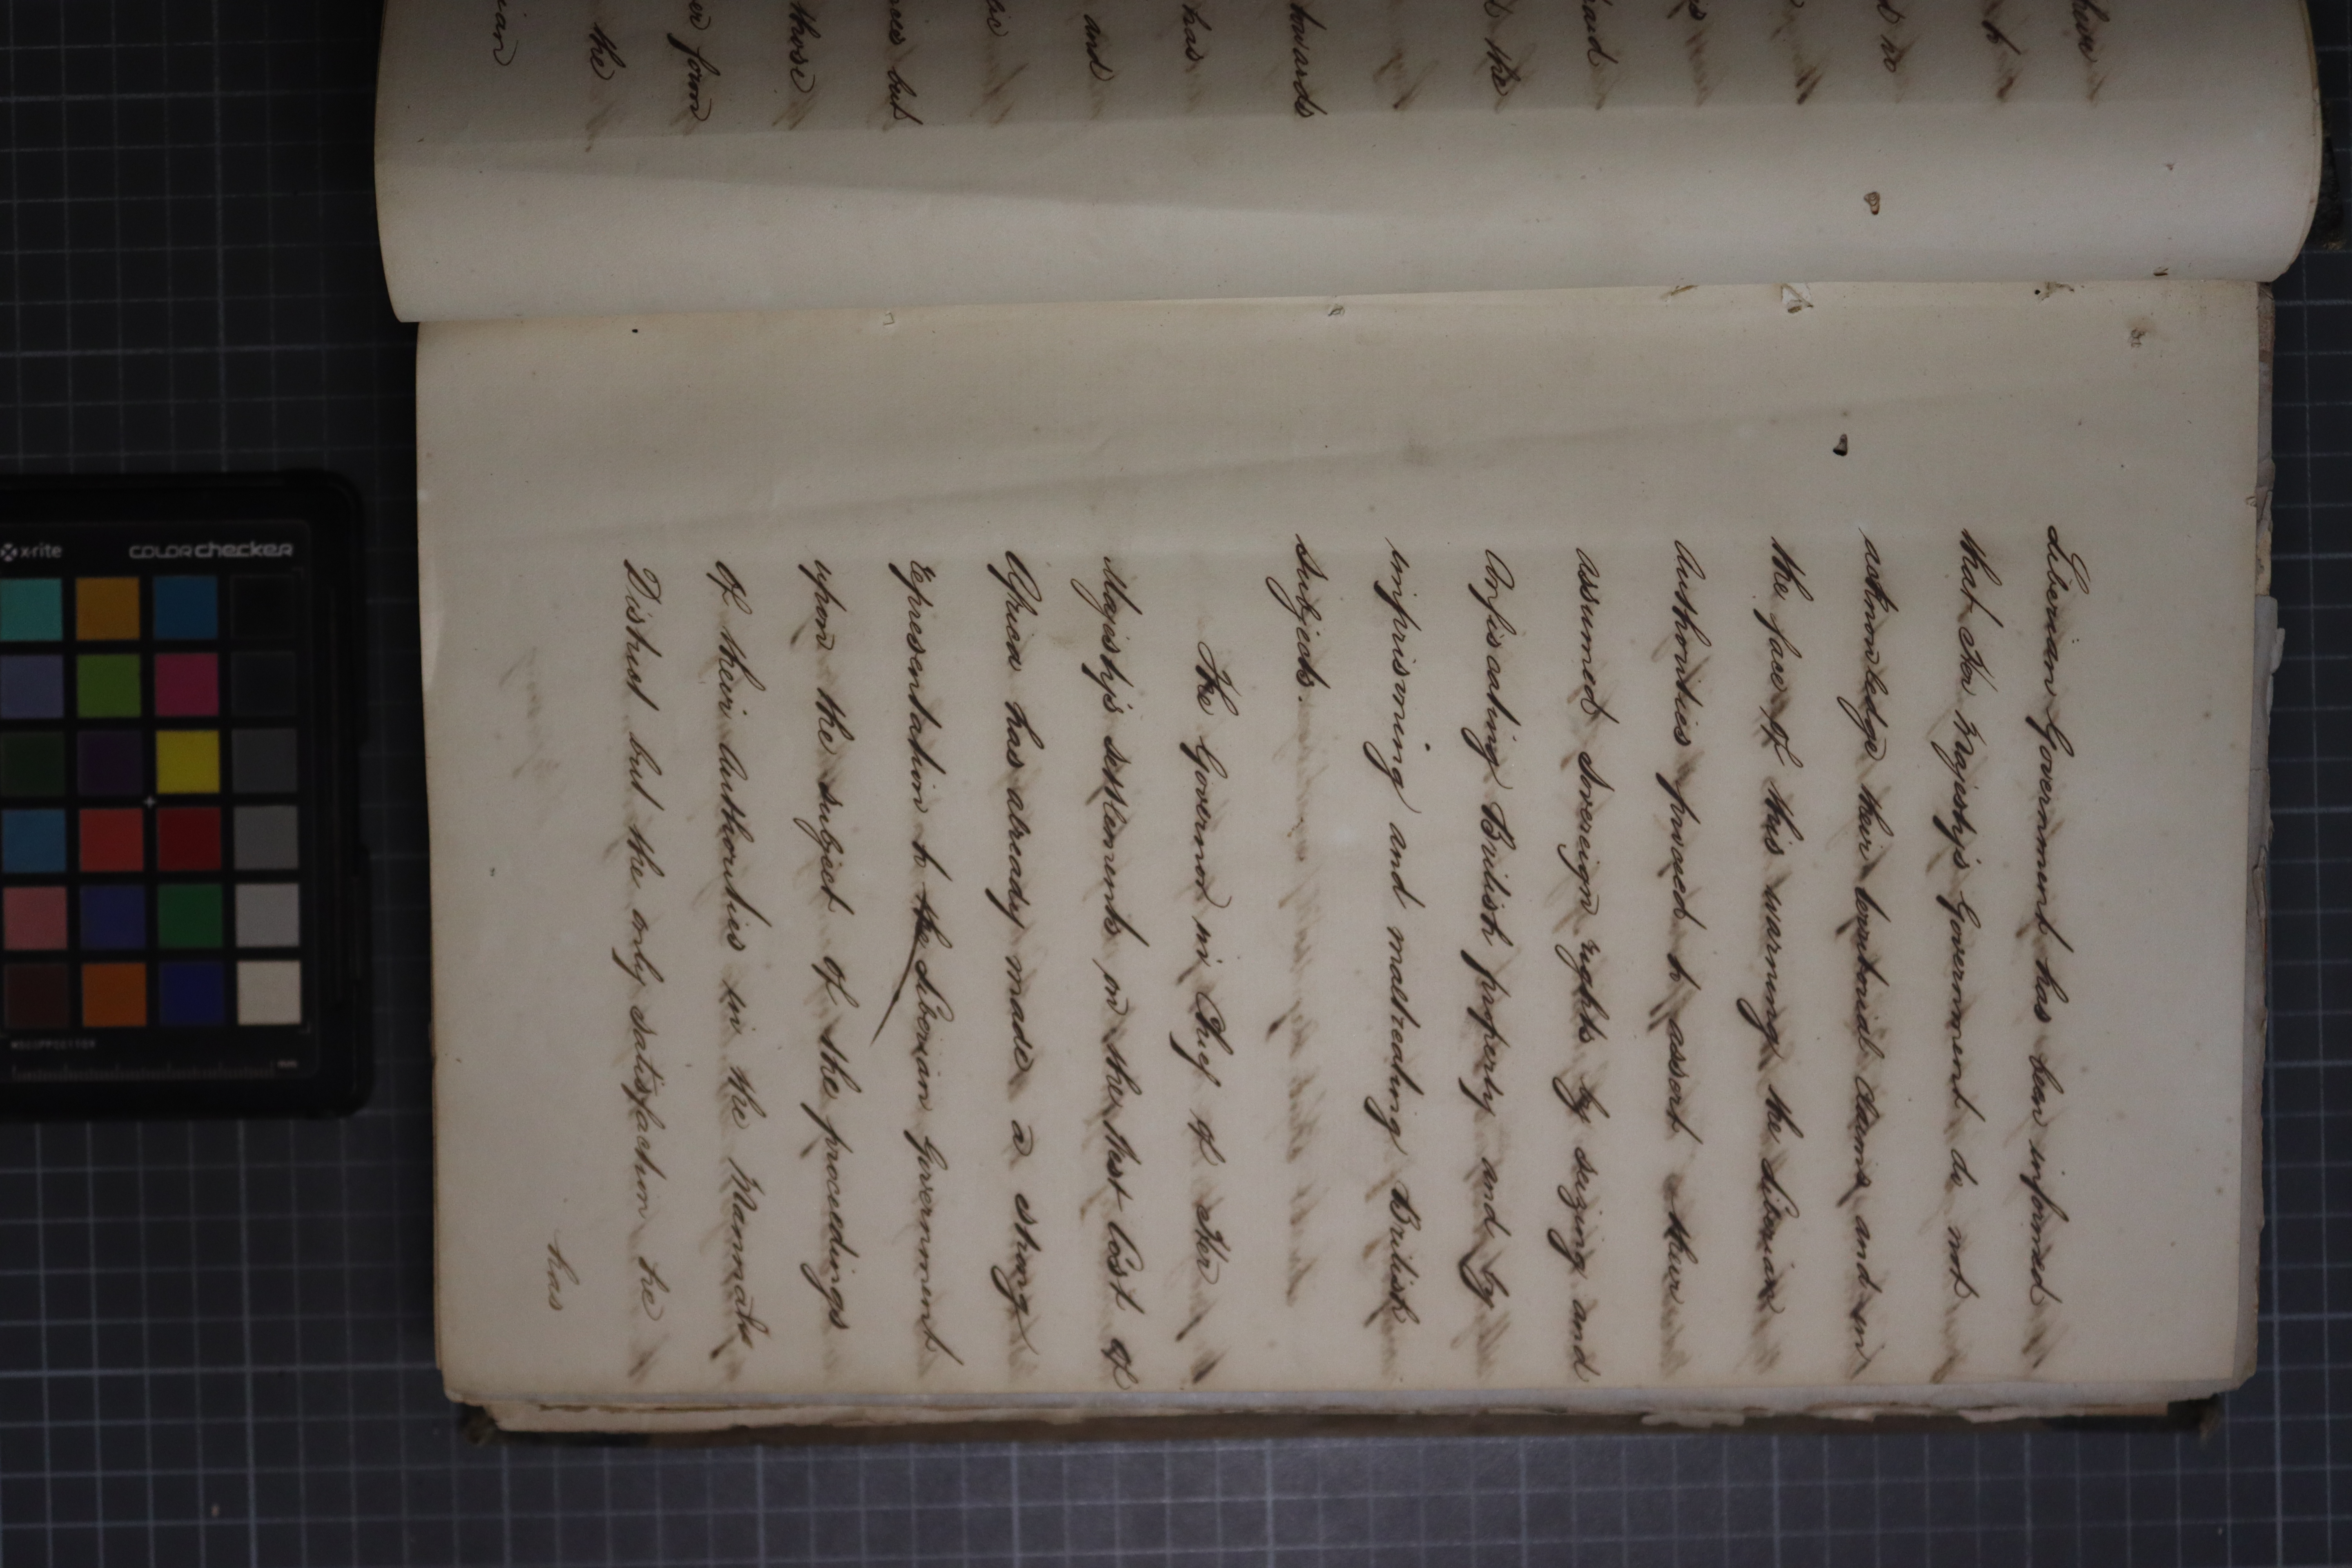 Liberian Government has been informed
that Her Majesty's Government do not
acknowledge their territorial claims and in
the face of this warning the Liberian
Authorities proceed to assert their
assumed Sovereign rights by seizing and
confiscating British property and by
imprisoning and maltreating British
subjects.
The Governor in Chief of Her
Majesty's settlements on the West Coast of
Africa has already made a strong
representation to the Liberian Government
upon the subject of the proceedings
of their Authorities in the Mannah
District but the only satisfaction he
has
to
d no
is
and
d the
towards
has
and
those
er form
the
ian
x-rite
colorchecker